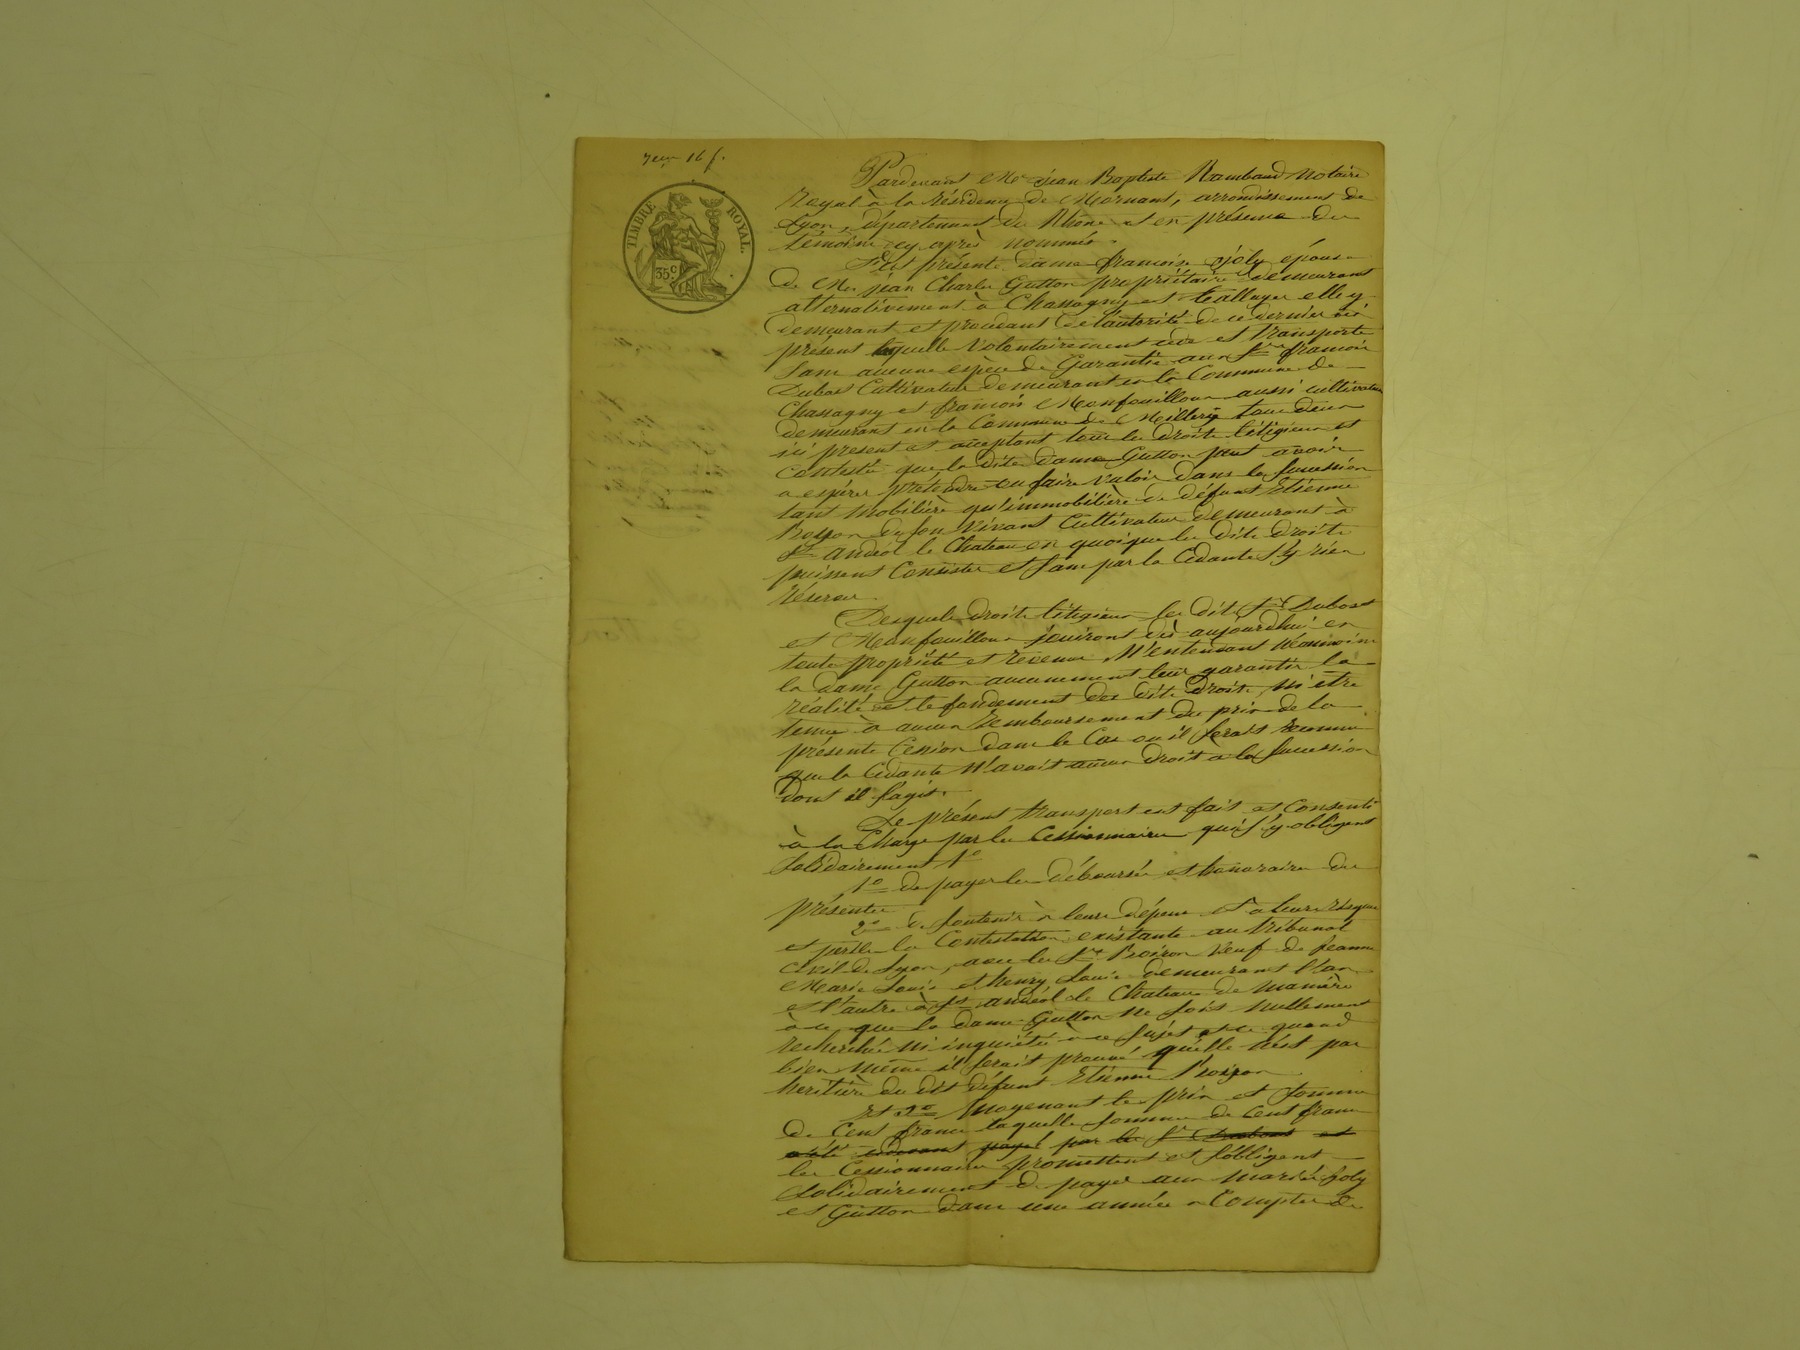 reçu 16 f.
TIMBRE ROYAL
35 c.
Pardevant Me jean Baptiste Rambaud Notaire
Royal à la résidence de Mornant, arrondissement de
Lyon, département du Rhône et en présence des
témoins cy après nommés.
Fut présente dame françoise joly épouse
de Mr jean Charles Gutton propriétaire demeurant
alternativement à Chassagny et Talluyer elle y
demeurant et procédant de l'autorité de ce dernier ici
présent laquelle volontairement cède et transporte
sans aucune espèce de Garantie aux Srs françois
Dubost Cultivateur demeurant en la Commune de
Chassagny et françois Monfouilloux aussi cultivateur
demeurant en la Commune de Millery tous deux
ici présent et acceptant tous les droits litigieux et
contestés que la dite dame Gutton peut avoir
a espérer prétendre ou faire valoir dans la succession
tant mobilière qu'immobilière de défunt Etienne
de son vivant Cultivateur demeurant à
St andéol le Chateau en quoique les dits droits
puissent Consister et sans par la Cédante s'y rien
réserver.
Desquels droits litigieux les dits Srs Dubost
et Monfouilloux jouiront dès aujourdhui en
toute propriété et revenu, N'entendant Néanmoins
la dame Gutton aucunement leur garantir la
réalité et le fondement des dits Droits, ni être
tenue à aucun Remboursement du prix de la
présente Cession dans le Cas ou il serait reconnu
que la Cédante N'avait aucun droit à la succession
dont il s'agit.
Le présent transport est fait et Consenti
à la Charge par les Cessionnaires qui s'y obligent
solidairement 1o
1o de payer les déboursés et honoraires des
présentes
2o de soutenir à leurs dépens et a leurs risques
et perils la Contestation existante au tribunal
Civil de Lyon, avec les Srs Boiron Veuf de jeanne
Marie Louis et henry Louis demeurant l'un
et l'autre à St andéol le Chateau de manière
à ce que la dame Gutton ne soit nullement
recherchée ni inquiétée à ce sujet et ce quand
bien même il serait prouvé qu'elle n'est pas
héritière du dit défunt Etienne
Et 3o Moyenant le prix et somme
de Cent francs laquelle somme de Cent francs
a été payé par le Sr Dubost et
les Cessionnaires promettent et s'obligent
solidairement de payer aux mariés Joly
et Gutton dans une année a Compter de